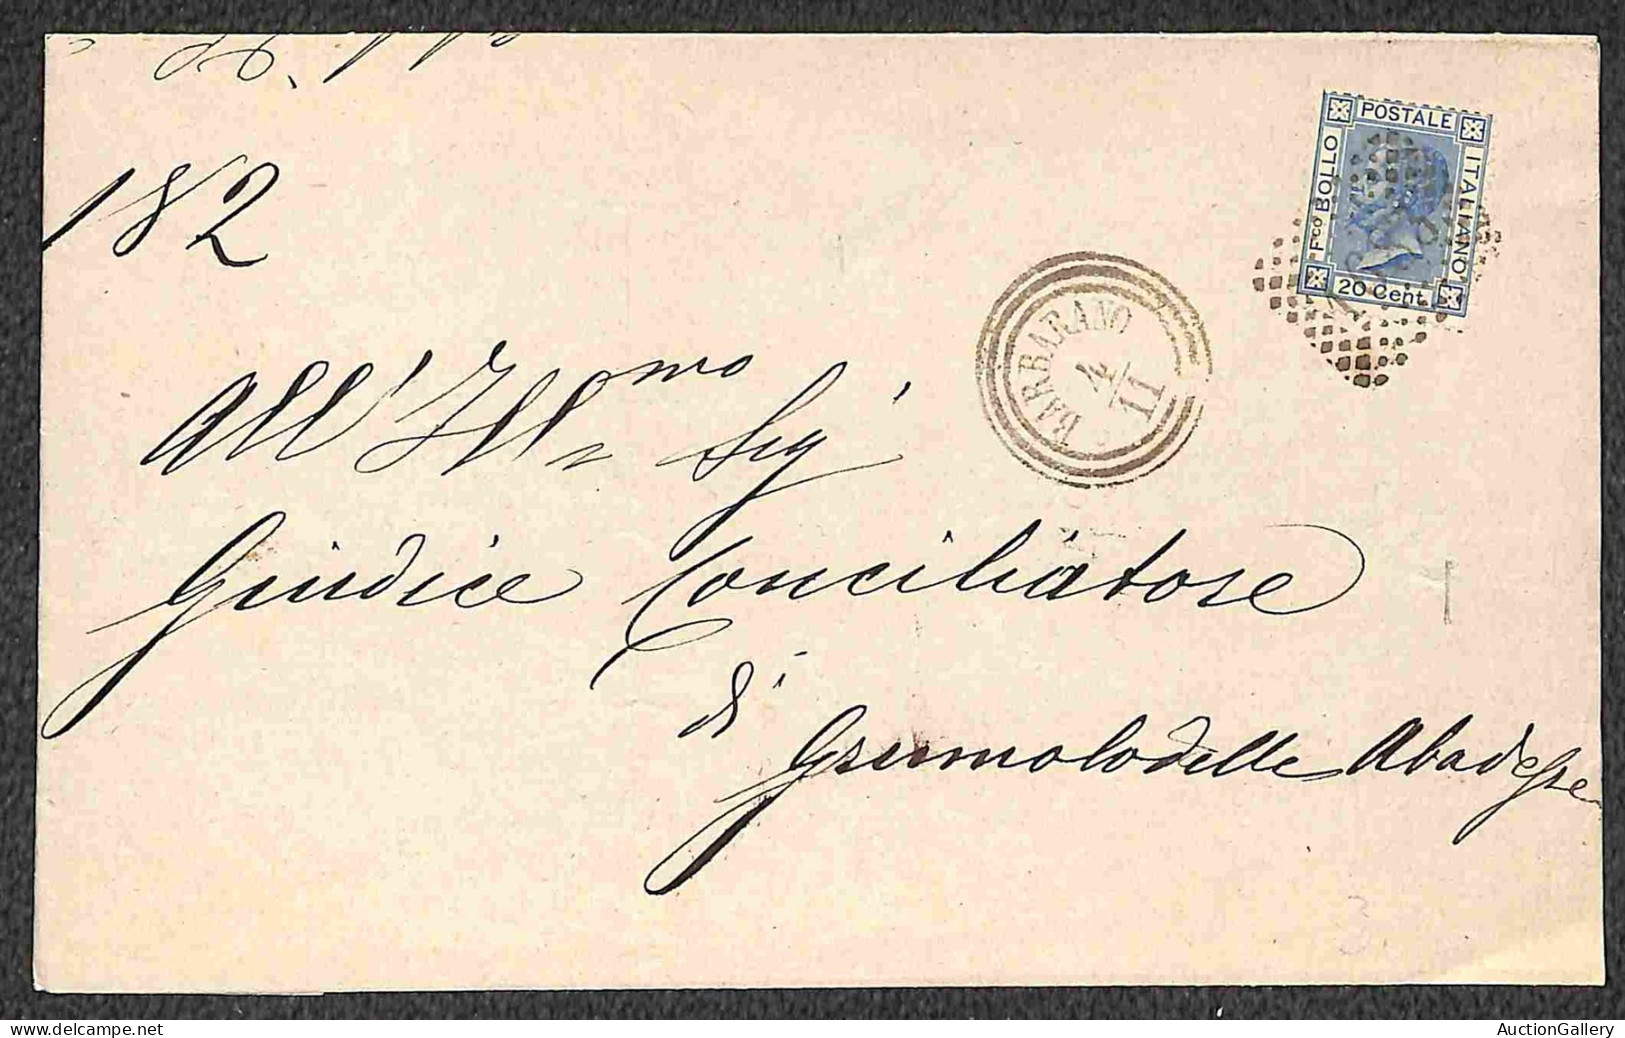 182
POSTALE
Fco BOLLO
ITALIANO
20 Cent
BARBARANO
4
11
All'Illmo Sig'
Giudice Conciliatore
di
Grumolo delle Abadesse
AuctionGallery